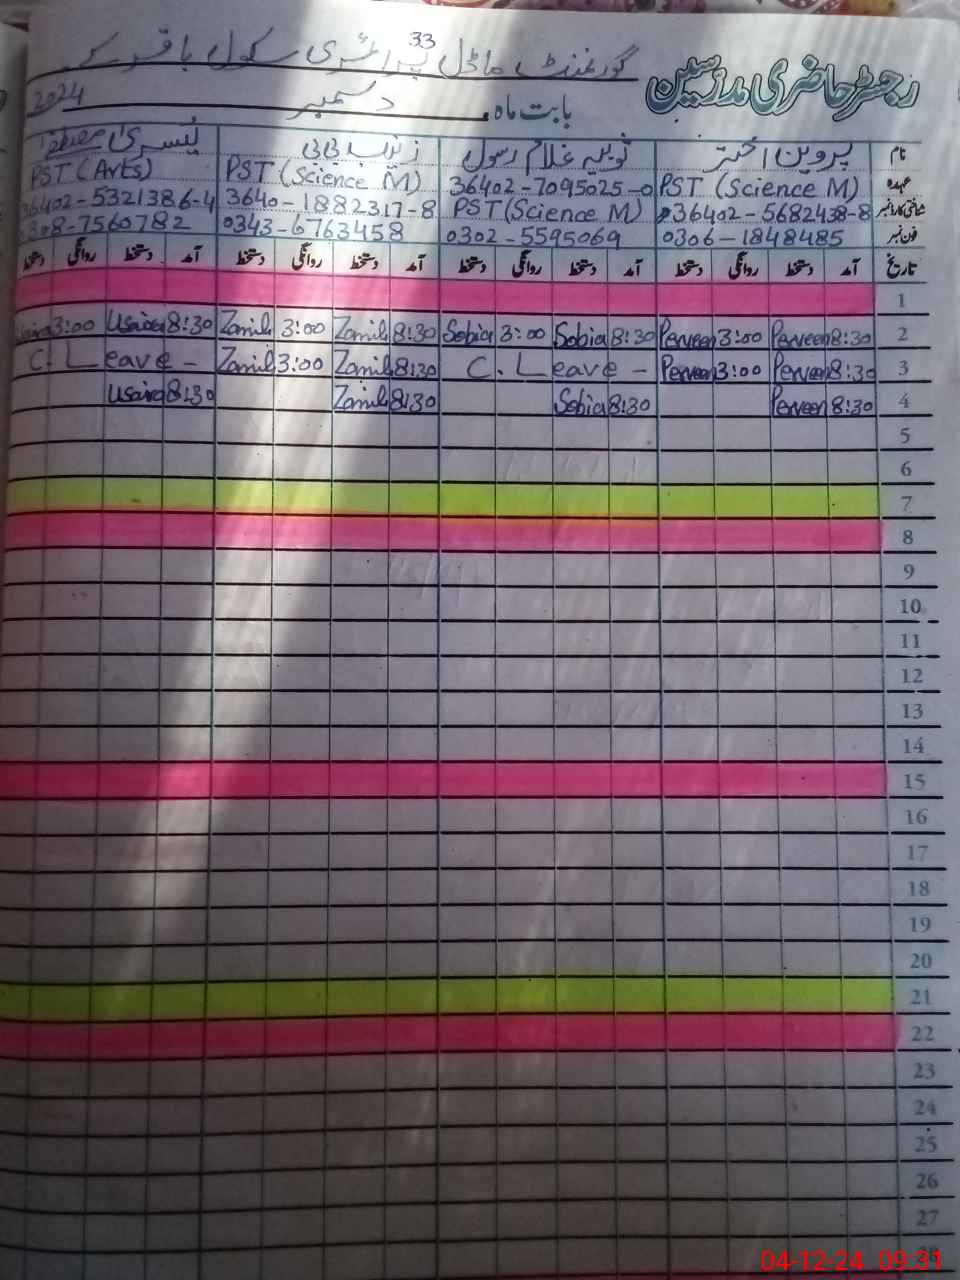 33
گورنمنٹ ماڈل پرائمری سکول باقر کے
رجسٹر حاضری مدرسین
بابت ماہ دسمبر 2024
نام پروین اختر ثوبیہ غلام رسول زینب بی بی یسریٰ مصطفیٰ
عہدہ PST (Science M) 36402-7095025-0 PST (Science M) PST (Arts)
شناختی کارڈ نمبر 36402-5682438-8 PST (Science M) 3640-1882317-8 36402-5321386-4
فون نمبر 0306-1848485 0302-5595069 0343-6763458 0308-7560782
تاریخ آمد دستخط روانگی دستخط آمد دستخط روانگی دستخط آمد دستخط روانگی دستخط آمد دستخط روانگی دستخط
1
2 8:30 Perveen 3:00 Perveen 8:30 Sobia 3:00 Sobia 8:30 Zanib 3:00 Zanib 8:30 Usaira 3:00
3 8:30 Perveen 3:00 Perveen C. Leave - 8:30 Zanib 3:00 Zanib C. Leave -
4 8:30 Perveen 8:30 Sobia 8:30 Zanib 8:30 Usaira
5
6
7
8
9
10
11
12
13
14
15
16
17
18
19
20
21
22
23
24
25
26
27
28
04-12-24 09:31